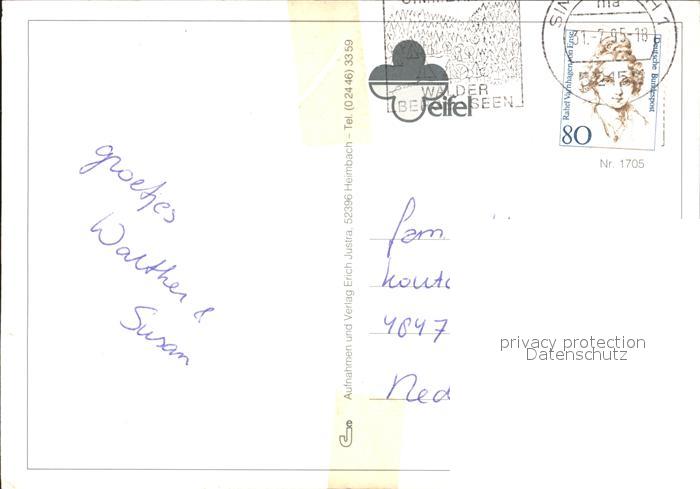 groetjes
Walther &
Susan
Aufnahmen und Verlag Erich Justra, 52396 Heimbach – Tel. (0 24 46) 33 59
WÄLDER
SEEN
eifel
31.-7.95-18
Rahel Varnhagen von Ense
Deutsche Bundespost
80
Nr. 1705
fam
4847
Ned
privacy protection
Datenschutz